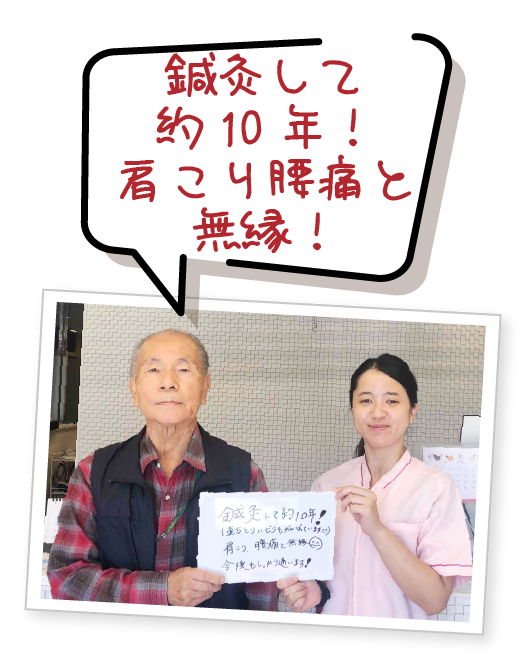 鍼灸して
約10年！
肩こり腰痛と
無縁！
鍼灸して約10年!
肩こり、腰痛と無縁
今後もしっかり通います!